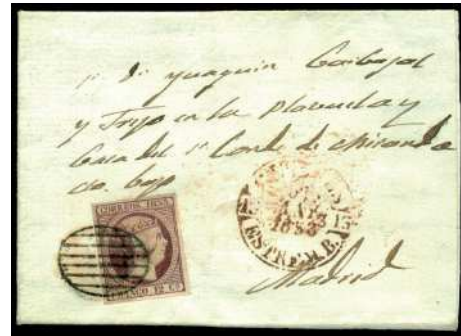 Sr Dn Juaquin Carbajal
y Trejo en la Plazuela y
Casa del Sr Conde de Miranda
cto bajo
CORREOS 1853
FRANCO 12 Cs
1853
ESTREM. B.
Madrid